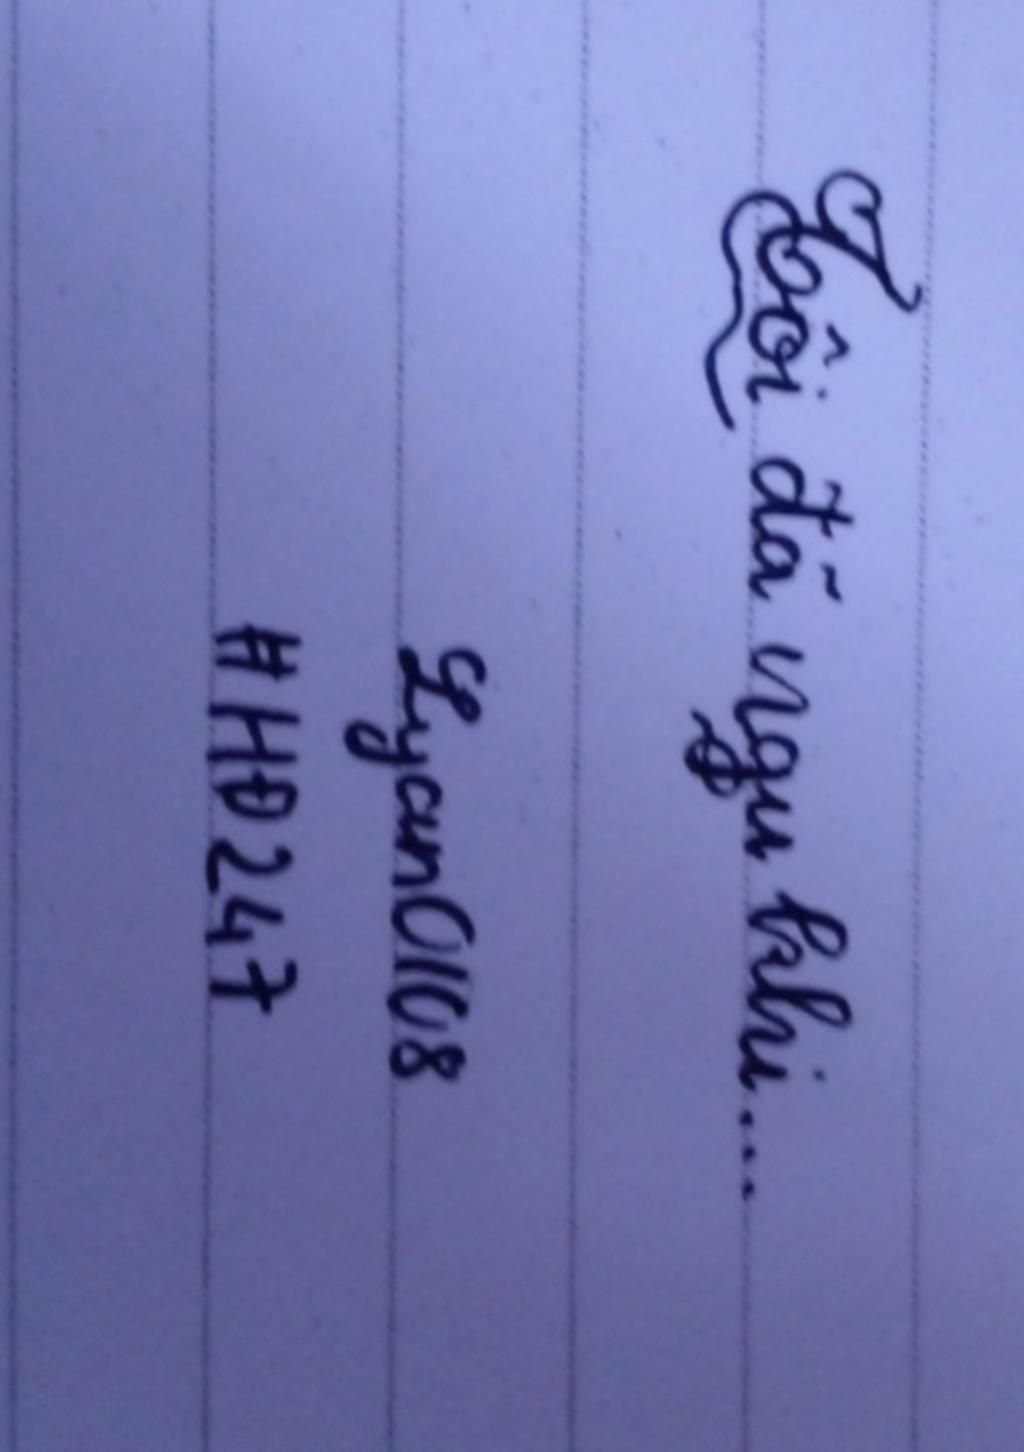 Tôi đã ngu khi...
Lyan01108
#HĐ247